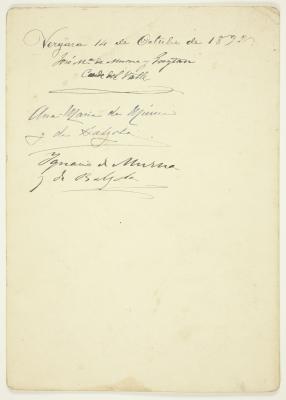 Vergara 14 de Octubre de 189
José Mª de Murua y Gaytan
Conde del Valle
Ana Maria de Murua
y de Balzola
Ignacio de Murua
y de Balzola